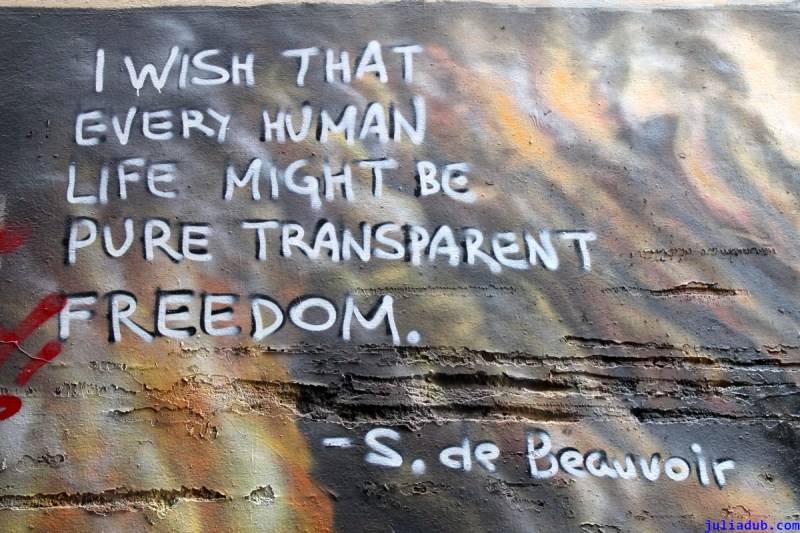 I WISH THAT
EVERY HUMAN
LIFE MIGHT BE
PURE TRANSPARENT
FREEDOM.
-S. de Beauvoir
juliadub.com